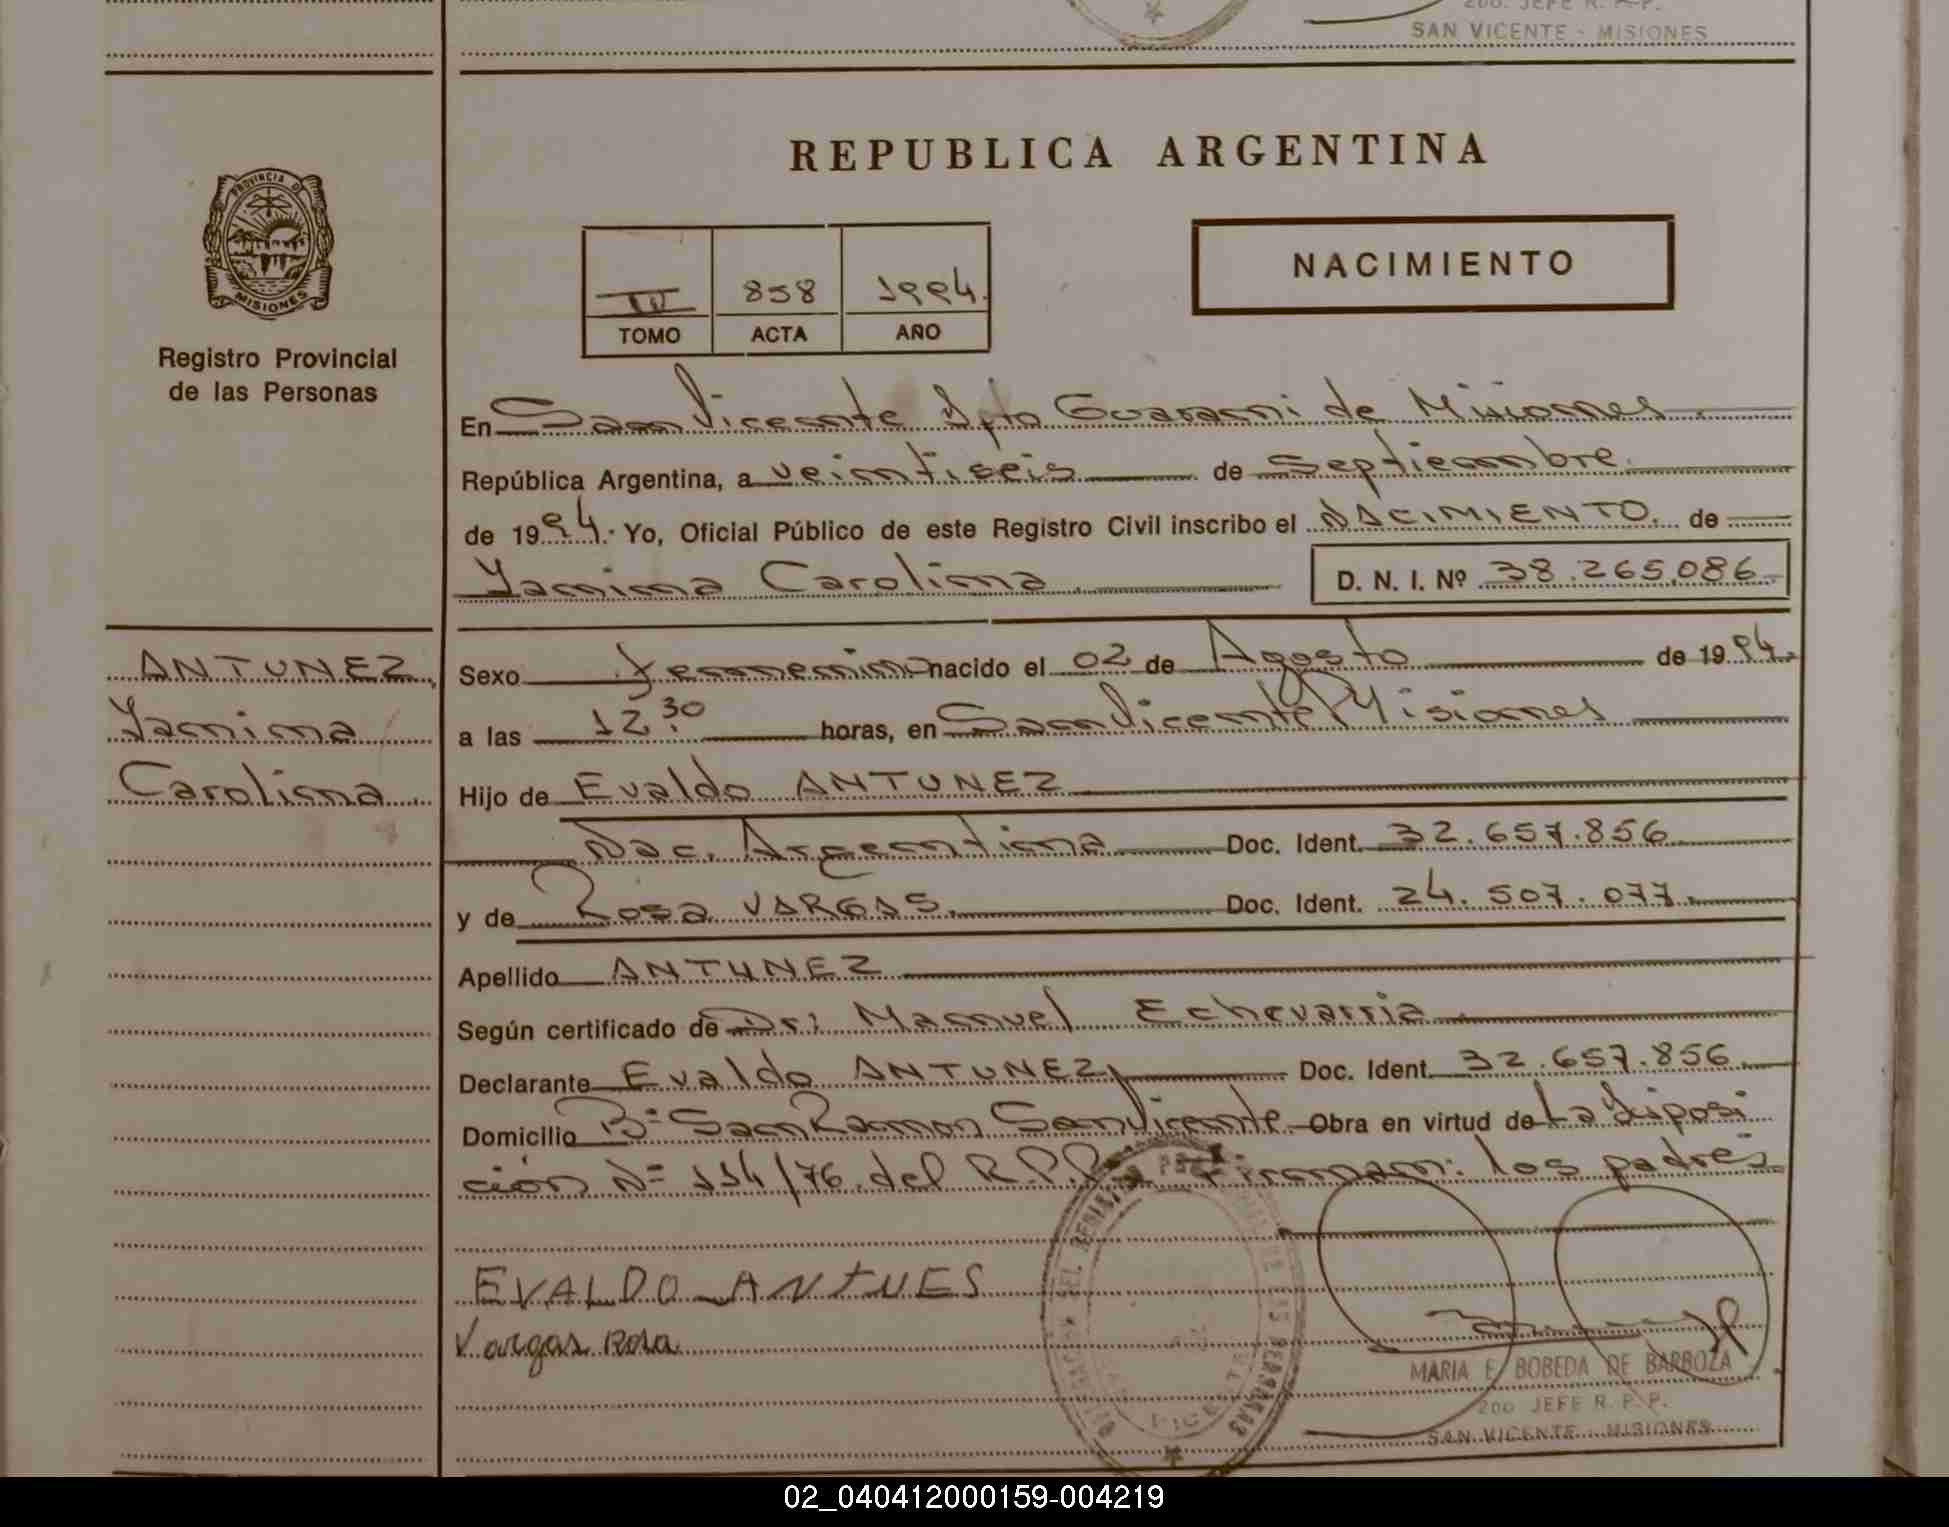 2do. JEFE R. P. P.
SAN VICENTE - MISIONES
REPUBLICA ARGENTINA
PROVINCIA DE
MISIONES
Registro Provincial
de las Personas
NACIMIENTO
858 1994.
TOMO ACTA AÑO
En San Vicente Dpto Guarani de Misiones
República Argentina, a veintiseis de Septiembre
de 1994. Yo, Oficial Público de este Registro Civil inscribo el NACIMIENTO. de
Yanina Carolina D. N. I. Nº 38.265.086
ANTUNEZ,
Yanina
Carolina
Sexo femenino nacido el 02 de Agosto de 1994.
a las 12:30 horas, en San Vicente Misiones
Hijo de Evaldo ANTUNEZ
Nac. Argentina Doc. Ident. 32.657.856
y de Rosa VARGAS. Doc. Ident. 24.507.077
Apellido ANTUNEZ
Según certificado de Dr: Manuel Echevarria
Declarante Evaldo ANTUNEZ Doc. Ident. 32.657.856
Domicilio Bº San Ramon San Vicente Obra en virtud de La Disposi
ción Nº 134/76 del R.P.P. Firman: los padres
EVALDO ANTUES
Vargas Rosa
MARIA E. BOBEDA DE BARBOZA
2do JEFE R. P. P.
SAN VICENTE - MISIONES
02_040412000159-004219